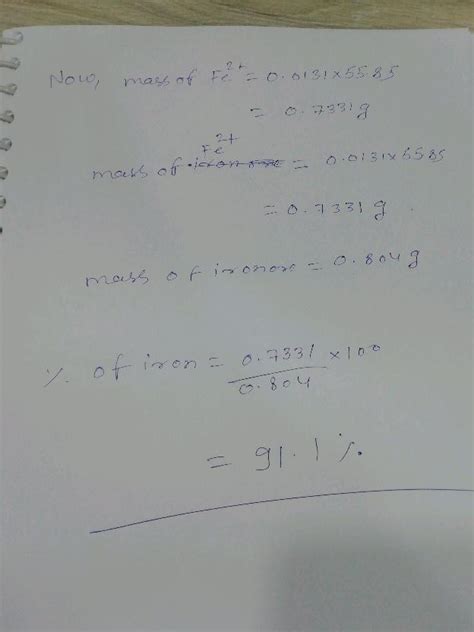 Now, mass of Fe²⁺ = 0.0131×55.85
= 0.7331g
Fe²⁺
mass of = 0.0131×55.85
= 0.7331 g.
mass of ironore = 0.804g
% of iron = 0.7331/0.804 ×100
= 91.1%